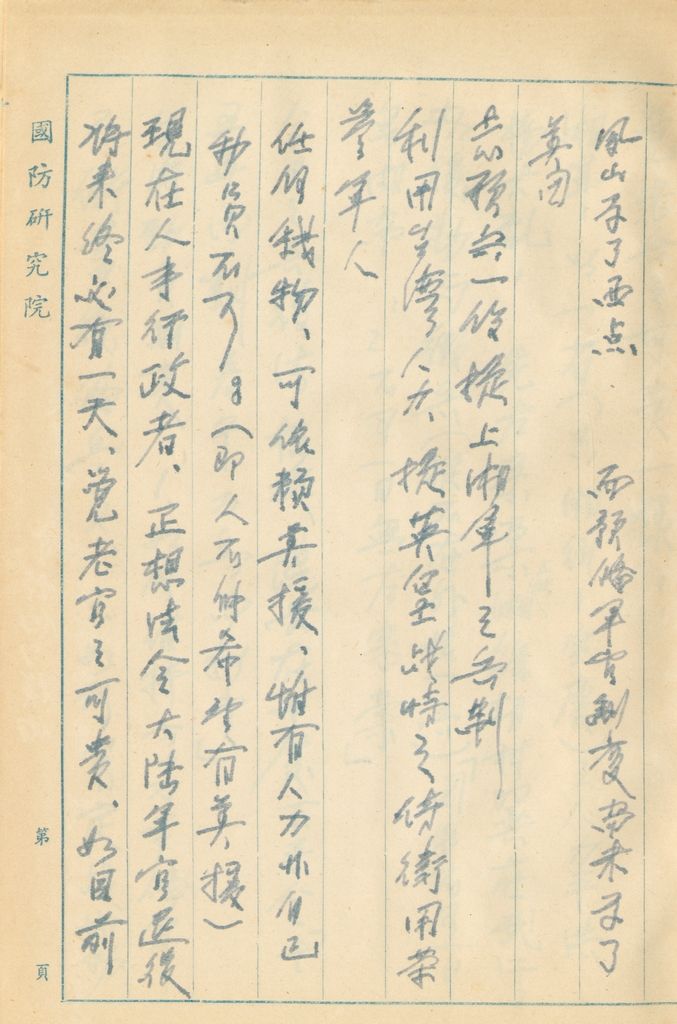 鳳山學了西点 而預備軍官制度尚未學了
美國
去前預
一伩 提上湘軍之
制
利用台灣人力、提英皇 時之侍衛用榮
譽軍人
任何錢物、可依賴美援、惟有人力非自己
動員不可。（即人不能希望有美援）
現在人事行政者、正想法令大陸軍官退役
將來終必有一天、覺老官之可貴、如目前
國防研究院
第 頁